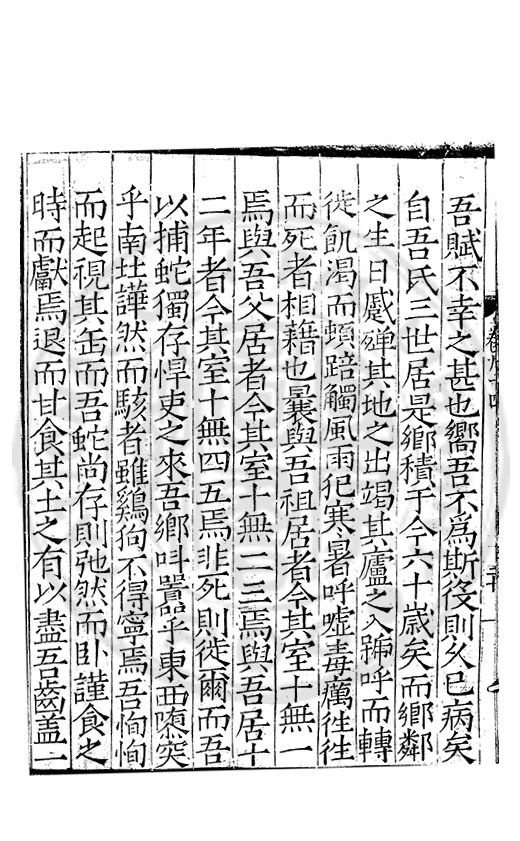 吾賦不幸之甚也嚮吾不爲斯役則久已病矣
自吾氏三世居是鄉積于今六十歲矣而鄉鄰
之生日蹙殫其地之出竭其廬之入號呼而轉
徙飢渴而頓踣觸風雨犯寒暑呼噓毒癘徃徃
而死者相藉也曩與吾祖居者今其室十無一
焉與吾父居者今其室十無二三焉與吾居十
二年者今其室十無四五焉非死則徙爾而吾
以捕蛇獨存悍吏之來吾鄉叫囂乎東西隳突
乎南北譁然而駭者雖鷄狗不得寧焉吾恂恂
而起視其缶而吾蛇尚存則弛然而卧謹食之
時而獻焉退而甘食其土之有以盡吾齒盖一